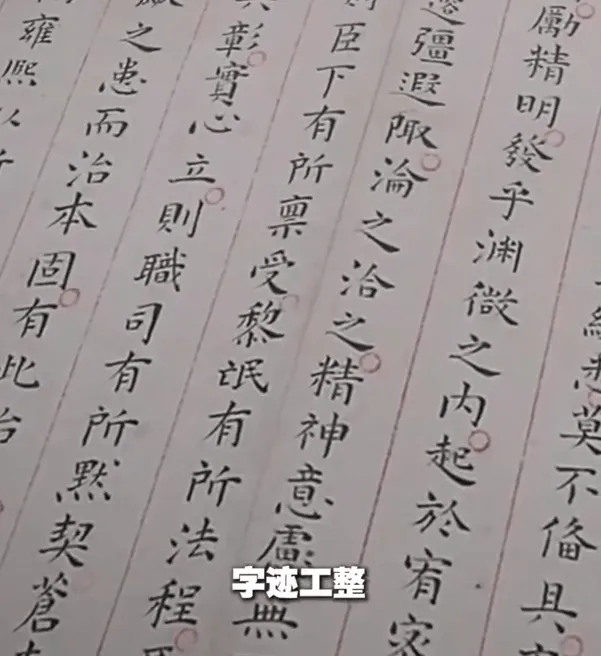 莫不俻具
勵精明發乎淵微之内起於宥密
彊遐陬淪之洽之精神意慮無
則臣下有所禀受黎氓有所法程
彰實心立則職司有所黙契蒼
之患而治本固有此治
雍熙以
字迹工整